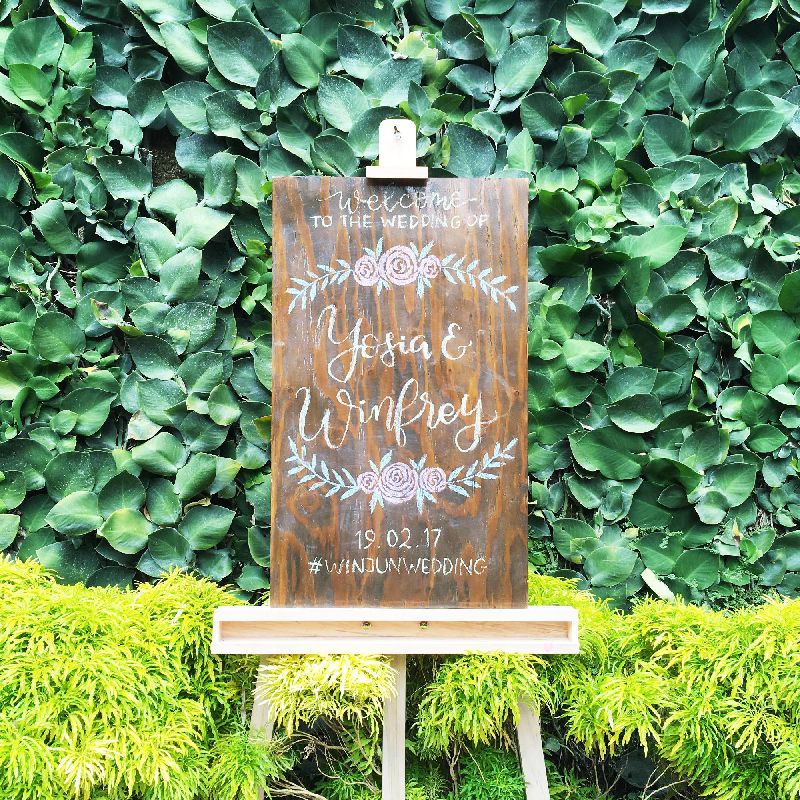 Welcome
TO THE WEDDING OF
Yosia &
Winfrey
19.02.17
#WINJUNWEDDING